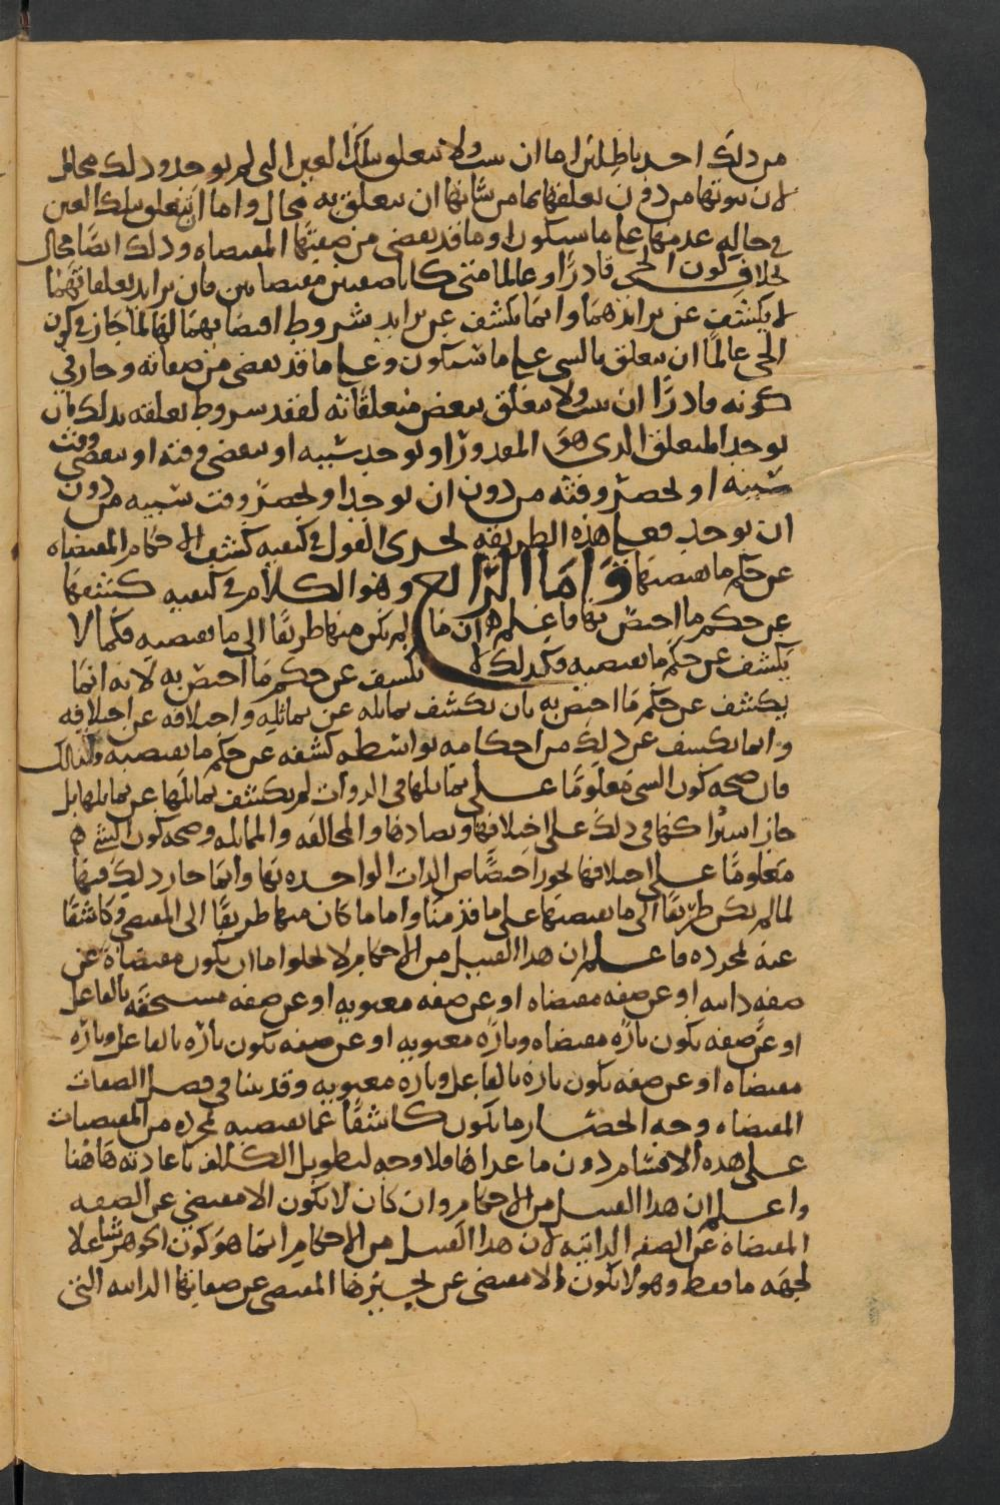 من ذلك احد باطلين اما ان يثبت ولا يتعلق بتلك العين التي لم توجد وذلك محال
لان ثبوتها من دون تعلقها بما من شانها ان يتعلق به محال واما ان يتعلق بتلك العين
في حالة عدمها على ما سيكون او ما قد تقضى من صفتها المقتضاه وذلك ايضا محال
بخلاف كون الحي قادرا او عالما متى كانا صفتين مقتضاتين فان تزايد تعلقاتهما
لا يكشف عن تزايدهما وانما يكشف عن تزايد شروط اقتضائهما لها لما جاز في كون
الحي عالما ان يتعلق بالشي على ما سيكون وعلى ما قد تقضى من صفاته وجاز في
كونه قادرا ان يثبت ولا يتعلق ببعض متعلقاته لفقد شروط تعلقه بذلك بان
يوجد المتعلق الذي هو المقدور او يوجد سببه او تقضى وقته او تقضى وقت
سببه او يحضر وقته من دون ان يوجد او يحضر وقت سببه من دون
ان يوجد فعلى هذه الطريقه يجرى القول في كيفيه كشف الاحكام المقتضاه
عن حكم ما يقتضيها واما الرابع وهو الكلام في كيفيه كشفها
عن حكم ما اختص بها فاعلم ان ما لم يكن منها طريقا الى ما يقتضيه فكما لا
يكشف عن حكم ما يقتضيه فكذلك لا يكشف عن حكم ما اختص به لانه انما
يكشف عن حكم ما اختص به بان يكشف تماثله عن تماثله واختلافه عن اختلافه
وانما يكشف عن ذلك من احكامه بواسطه كشفه عن حكم ما يقتضيه ولذلك
فان صحه كون الشي معلوما على تماثلها في الذوات لم يكشف تماثلها عن تماثلها بل
جاز اشتراكها في ذلك على اختلافها وتضادها والمخالفه والمماثله وصحه كون الشي
معلوما على اختلافها يجوز اختصاص الذات الواحده بها وانما جاز ذلك فيها
لما لم يكن طريقا الى ما يقتضيها على ما قدمنا واما ما كان منها طريقا الى المقتضي وكاشفا
عنه بمجرده فاعلم ان هذا القبيل من الاحكام لا يخلوا اما ان يكون مقتضاه عن
صفه ذاتيه او عن صفه مقتضاه او عن صفه معنويه او عن صفه مستحقه بالفاعل
او عن صفه يكون تاره مقتضاه وتاره معنويه او عن صفه تكون تاره بالفاعل وتاره
مقتضاه او عن صفه تكون تاره بالفاعل وتاره معنويه وقد بينا في فصل الصفات
المقتضاه وجه انحصار ما يكون كاشفا عما يقتضيه بمجرده من المقتضيات
على هذه الاقسام دون ما عداها فلا وجه لتطويل الكلام باعادته هاهنا
واعلم ان هذا القبيل من الاحكام وان كان لا يكون الا مقتضى عن الصفه
المقتضاه عن الصفه الذاتيه لان هذا القبيل من الاحكام انما هو كون الجوهر شاغلا
لجهه ما فقط وهو لا يكون الا مقتضى عن تحيزها المقتضى عن صفاتها الذاتيه التي